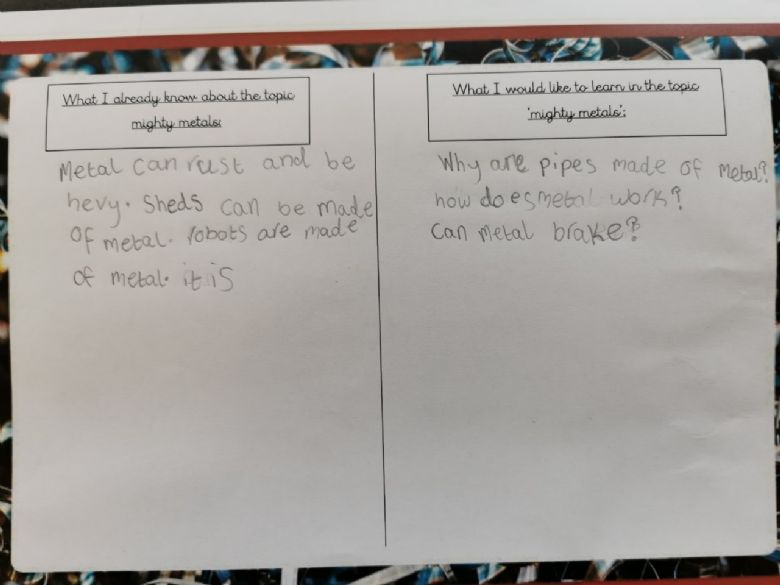 What I already know about the topic
mighty metals:
Metal can rust and be
hevy. Sheds can be made
of metal. robots are made
of metal. it is
What I would like to learn in the topic
'mighty metals':
Why are pipes made of metal?
how does metal work?
can metal brake?